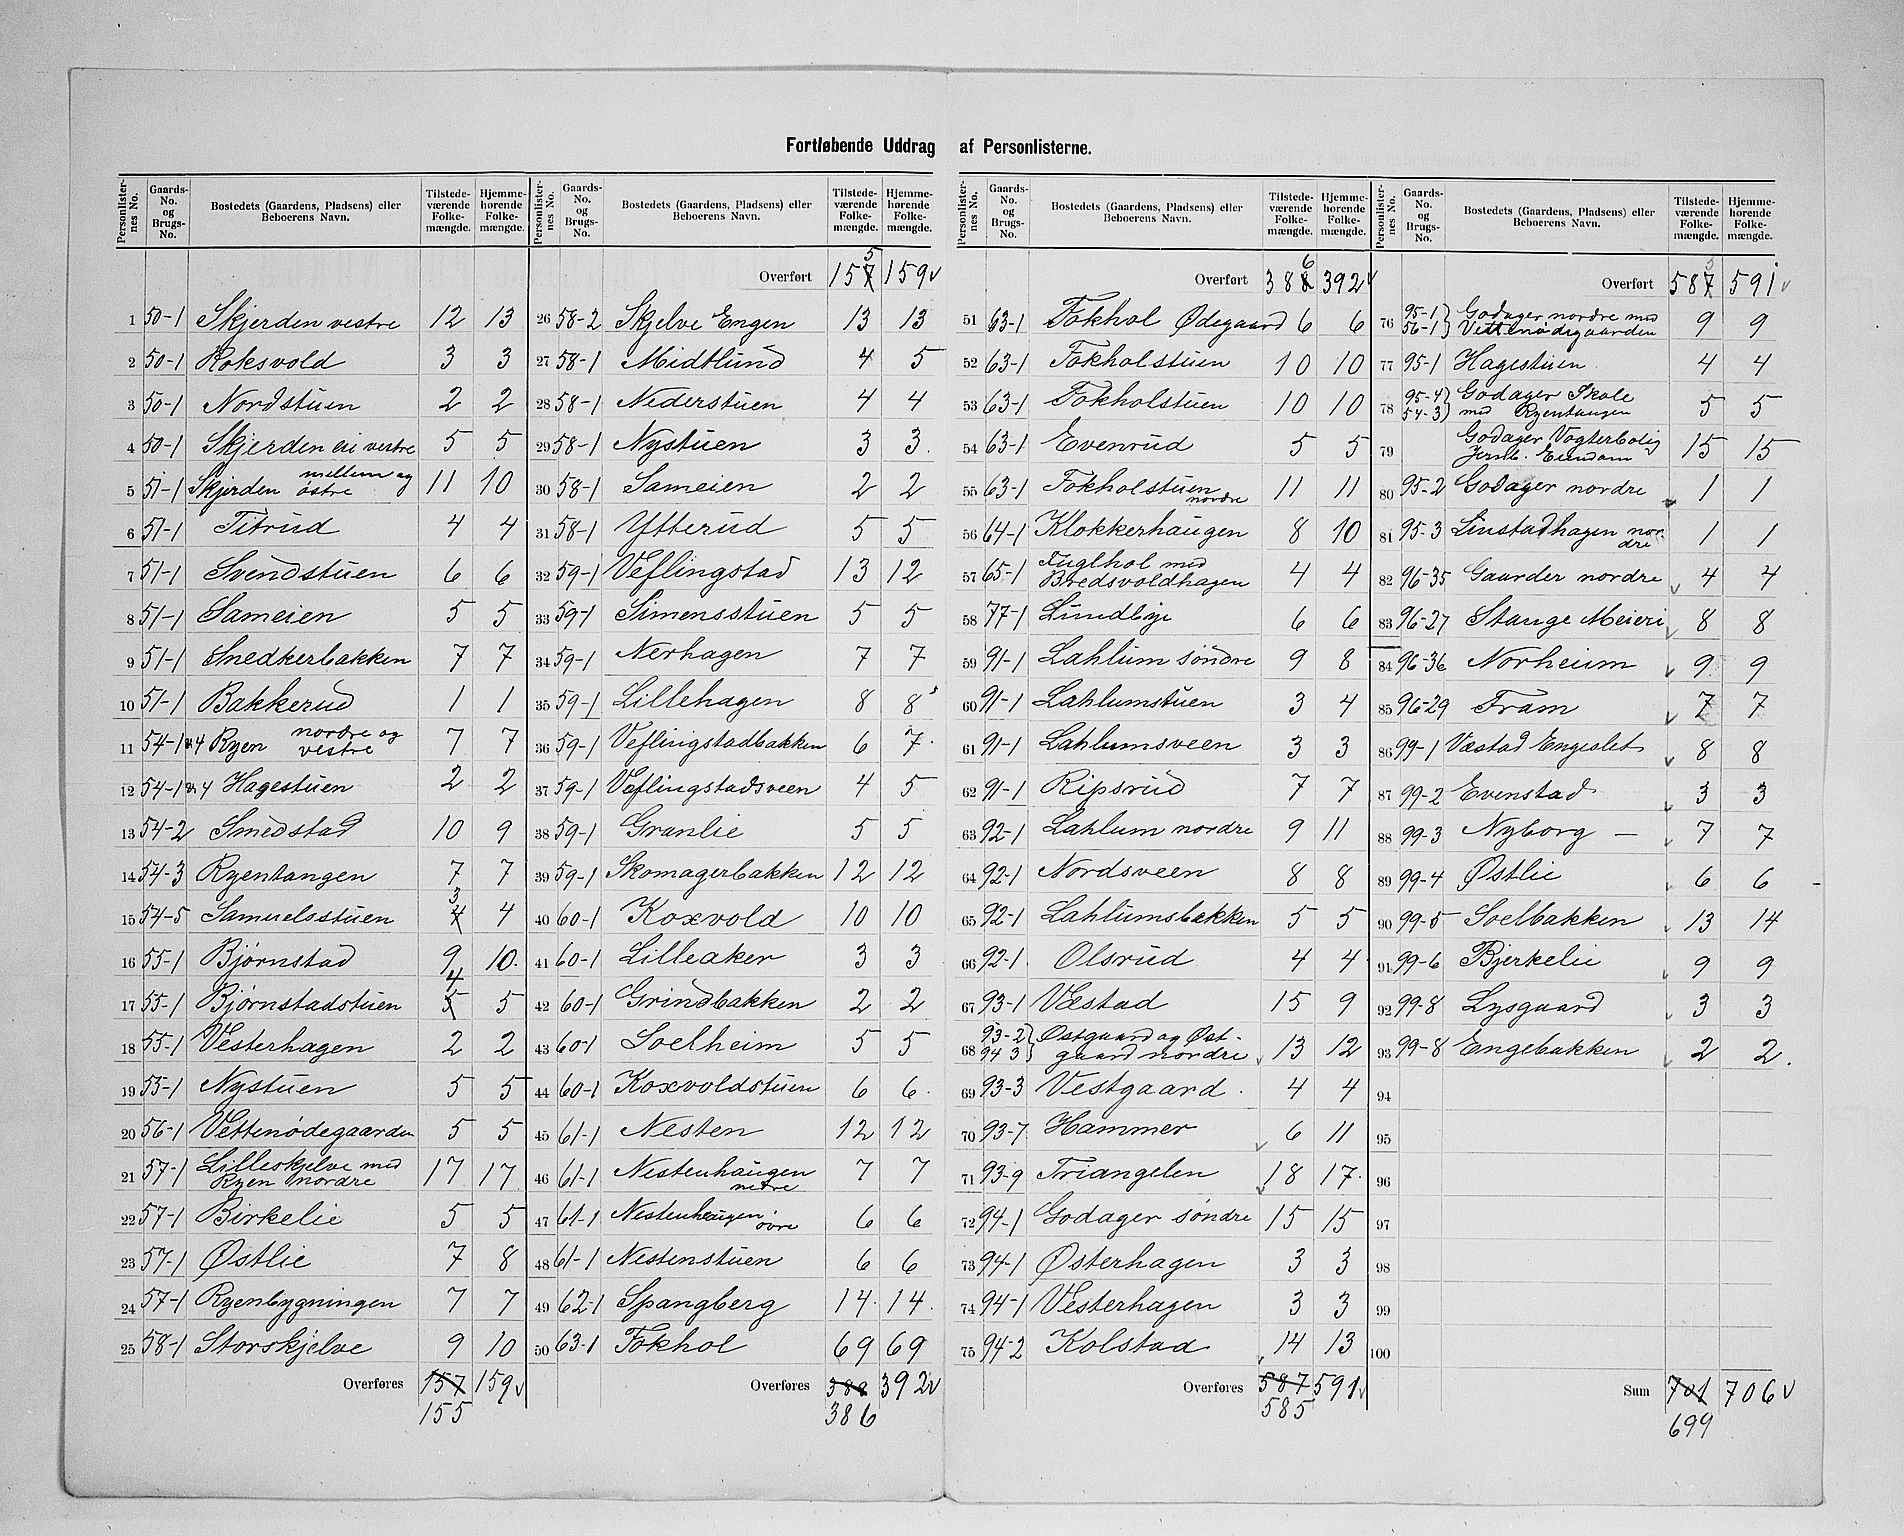 Fortløbende Uddrag af Personlisterne.
Personlisternes No. Gaards-No. og Brugs-No. Bostedets (Gaardens, Pladsens) eller Beboerens Navn. Tilstedeværende Folkemængde. Hjemmehørende Folkemængde.
1 50-1 Skjerden vestre 12 13
2 50-1 Roksvold 3 3
3 50-1 Nordstuen 2 2
4 50-1 Skjerden vestre 5 5
5 51-1 Skjerden mellem og østre 11 10
6 51-1 Titrud 4 4
7 51-1 Svendstuen 6 6
8 51-1 Sameien 5 5
9 51-1 Snedkerbakken 7 7
10 51-1 Bakkerud 1 1
11 54-1 & 4 Ryen nordre og vestre 7 7
12 54-1 & 4 Hagestuen 2 2
13 54-2 Smedstad 10 9
14 54-3 Ryentangen 7 7
15 54-5 Samuelsstuen 4 3 4
16 55-1 Bjørnstad 9 10
17 55-1 Bjørnstadstuen 5 4 5
18 55-1 Vesterhagen 2 2
19 55-1 Nystuen 5 5
20 56-1 Vettenødegaarden 5 5
21 57-1 Lilleskjelve med Ryen nordre 17 17
22 57-1 Birkelie 5 5
23 57-1 Østlie 7 8
24 57-1 Ryenbygningen 7 7
25 58-1 Storskjelve 9 10
Overføres 157 159 v
155
Personlisternes No. Gaards-No. og Brugs-No. Bostedets (Gaardens, Pladsens) eller Beboerens Navn. Tilstedeværende Folkemængde. Hjemmehørende Folkemængde.
Overført 157 5 159 v
26 58-2 Skjelve Engen 13 13
27 58-1 Midtlund 4 5
28 58-1 Nederstuen 4 4
29 58-1 Nystuen 3 3
30 58-1 Sameien 2 2
31 58-1 Ytterud 5 5
32 59-1 Veflingstad 13 12
33 59-1 Simensstuen 5 5
34 59-1 Nerhagen 7 7
35 59-1 Lillehagen 8 8
36 59-1 Veflingstadbakken 6 7
37 59-1 Veflingstadsveen 4 5
38 59-1 Granlie 5 5
39 59-1 Skomagerbakken 12 12
40 60-1 Koxvold 10 10
41 60-1 Lilleaker 3 3
42 60-1 Grindbakken 2 2
43 60-1 Soelheim 5 5
44 60-1 Koxvoldstuen 6 6
45 61-1 Nesten 12 12
46 61-1 Nestenhaugen nedre 7 7
47 61-1 Nestenhaugen øvre 6 6
48 61-1 Nestenstuen 6 6
49 62-1 Spangberg 14 14
50 63-1 Fokhol 69 69
Overføres 388 392 v
386
Personlisternes No. Gaards-No. og Brugs-No. Bostedets (Gaardens, Pladsens) eller Beboerens Navn. Tilstedeværende Folkemængde. Hjemmehørende Folkemængde.
Overført 388 6 392 v
51 63-1 Fokhol Ødegaard 6 6
52 63-1 Fokholstuen 10 10
53 63-1 Fokholstuen 10 10
54 63-1 Evenrud 5 5
55 63-1 Fokholstuen nordre 11 11
56 64-1 Klokkerhaugen 8 10
57 65-1 Fuglhol med Bredsvoldhagen 4 4
58 77-1 Lundbye 6 6
59 91-1 Lahlum søndre 9 8
60 91-1 Lahlumstuen 3 4
61 91-1 Lahlumsveen 3 3
62 91-1 Ripsrud 7 7
63 92-1 Lahlum nordre 9 11
64 92-1 Nordsveen 8 8
65 92-1 Lahlumsbakken 5 5
66 92-1 Olsrud 4 4
67 93-1 Væstad 15 9
68 93-2 94 3 } Østgaard og Østgaard nordre v 13 12
69 93-3 Vestgaard 4 4
70 93-7 Hammer v 6 11
71 93-9 Triangelen v 18 17
72 94-1 Godager søndre 15 15
73 94-1 Østerhagen 3 3
74 94-1 Vesterhagen 3 3
75 94-2 Kolstad v 14 13
Overføres 587 591 v
585
Personlisternes No. Gaards-No. og Brugs-No. Bostedets (Gaardens, Pladsens) eller Beboerens Navn. Tilstedeværende Folkemængde. Hjemmehørende Folkemængde.
Overført 587 5 591 v
76 95-1 56-1 } Godager nordre med Vettenødegaarden 9 9
77 95-1 Hagestuen 4 4
78 95-4 54-3 } Godager Skole med Ryentangen 5 5
79 Godager Vogterbolig Jernb. Eiendom 15 15
80 95-2 Godager nordre 1 1
81 95-3 Linstadhagen nordre 1 1
82 96-35 Gaarder nordre v 4 4
83 96-27 Stange Meieri v 8 8
84 96-36 Norheim v 9 9
85 96-29 Fram v 7 7
86 99-1 Væstad Engeslet v 8 8
87 99-2 Evenstad v 3 3
88 99-3 Nyborg — v 7 7
89 99-4 Østlie v 6 6
90 99-5 Soelbakken v 13 14
91 99-6 Bjerkelie v 9 9
92 99-8 Lysgaard v 3 3
93 99-8 Engebakken v 2 2
94
95
96
97
98
99
100
Sum 701 706 v
699